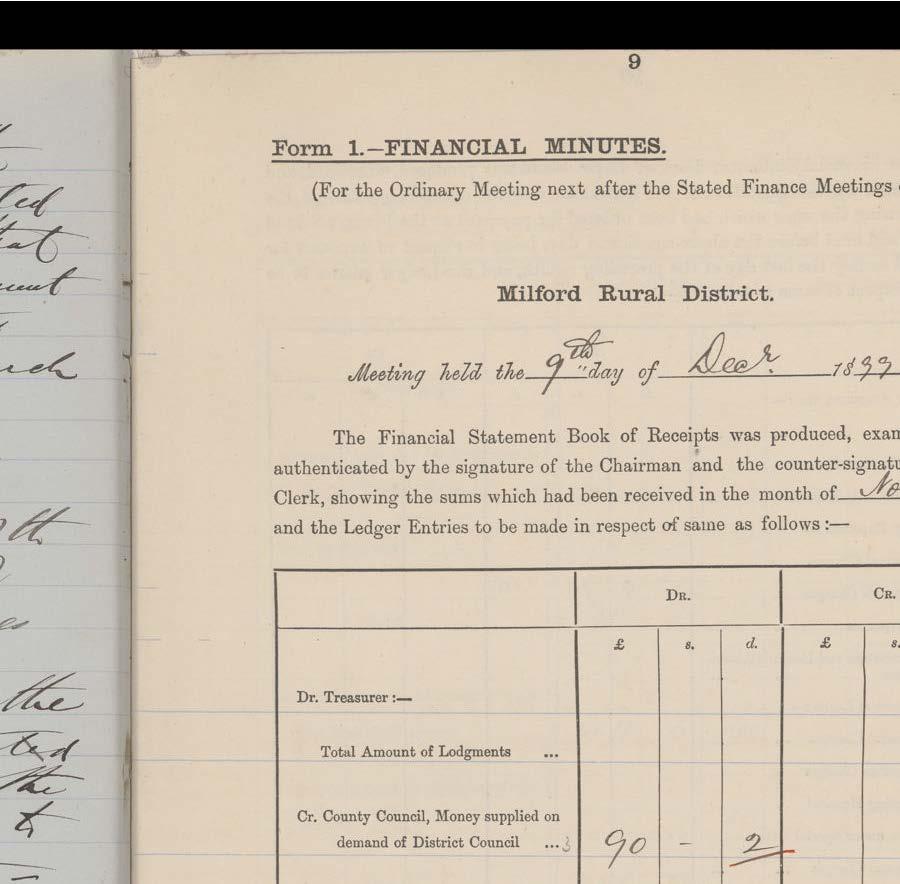 ted
the
ted
the
to
9
Form 1.—FINANCIAL MINUTES.
(For the Ordinary Meeting next after the Stated Finance Meetings
Milford Rural District.
Meeting held the 9th day of Decr. 1899
The Financial Statement Book of Receipts was produced, exam
authenticated by the signature of the Chairman and the counter-signatu
Clerk, showing the sums which had been received in the month of No
and the Ledger Entries to be made in respect of same as follows :—
DR. CR.
£ s. d. £ s.
Dr. Treasurer :—
Total Amount of Lodgments ...
Cr. County Council, Money supplied on
demand of District Council ...3 90 - 2